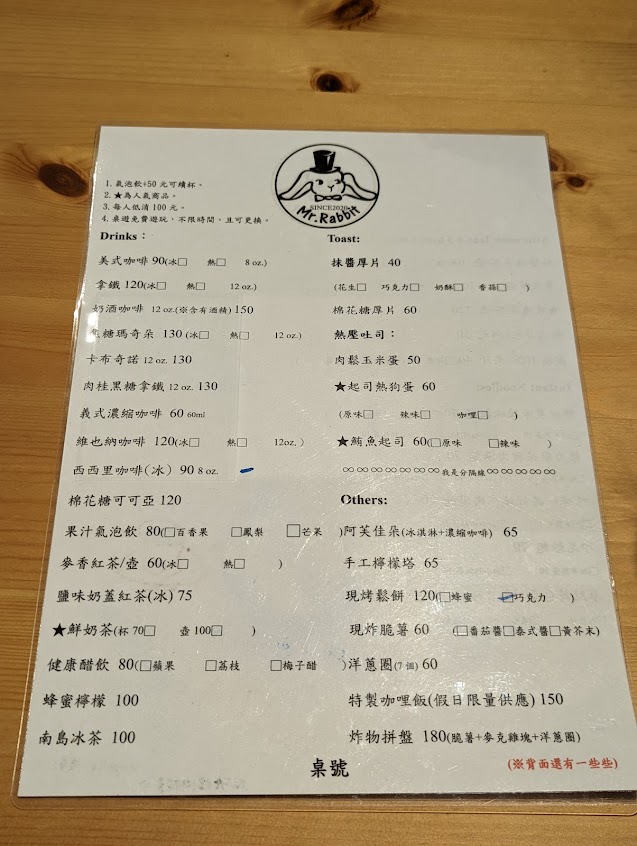 1. 氣泡飲+50 元可續杯。
2. ★為人氣商品。
3. 每人低消 100 元。
4. 桌遊免費遊玩，不限時間，且可更換。
SINCE2020
Mr.Rabbit
Drinks：
美式咖啡 90(冰□ 熱□ 8 oz.)
拿鐵 120(冰□ 熱□ 12 oz.)
奶酒咖啡 12 oz.(※含有酒精) 150
焦糖瑪奇朵 130 (冰□ 熱□ 12 oz.)
卡布奇諾 12 oz. 130
肉桂黑糖拿鐵 12 oz. 130
義式濃縮咖啡 60 60ml
維也納咖啡 120(冰□ 熱□ 12oz.)
西西里咖啡(冰) 90 8 oz.
棉花糖可可亞 120
果汁氣泡飲 80(□百香果 □鳳梨 □芒果 )
麥香紅茶/壺 60(冰□ 熱□ )
鹽味奶蓋紅茶(冰) 75
★鮮奶茶(杯 70□ 壺 100□ )
健康醋飲 80(□蘋果 □荔枝 □梅子醋 )
蜂蜜檸檬 100
南島冰茶 100
Toast:
抹醬厚片 40
(花生□ 巧克力□ 奶酥□ 香蒜□ )
棉花糖厚片 60
熱壓吐司：
肉鬆玉米蛋 50
★起司熱狗蛋 60
(原味□ 辣味□ 咖哩□ )
★鮪魚起司 60(□原味 □辣味 )
∞∞∞∞∞∞∞∞∞我是分隔線∞∞∞∞∞∞
Others:
阿芙佳朵(冰淇淋+濃縮咖啡) 65
手工檸檬塔 65
現烤鬆餅 120(□蜂蜜 □巧克力 )
現炸脆薯 60 (□番茄醬□泰式醬□黃芥末)
洋蔥圈(7 個) 60
特製咖哩飯(假日限量供應) 150
炸物拼盤 180(脆薯+麥克雞塊+洋蔥圈)
桌號
(※背面還有一些些)